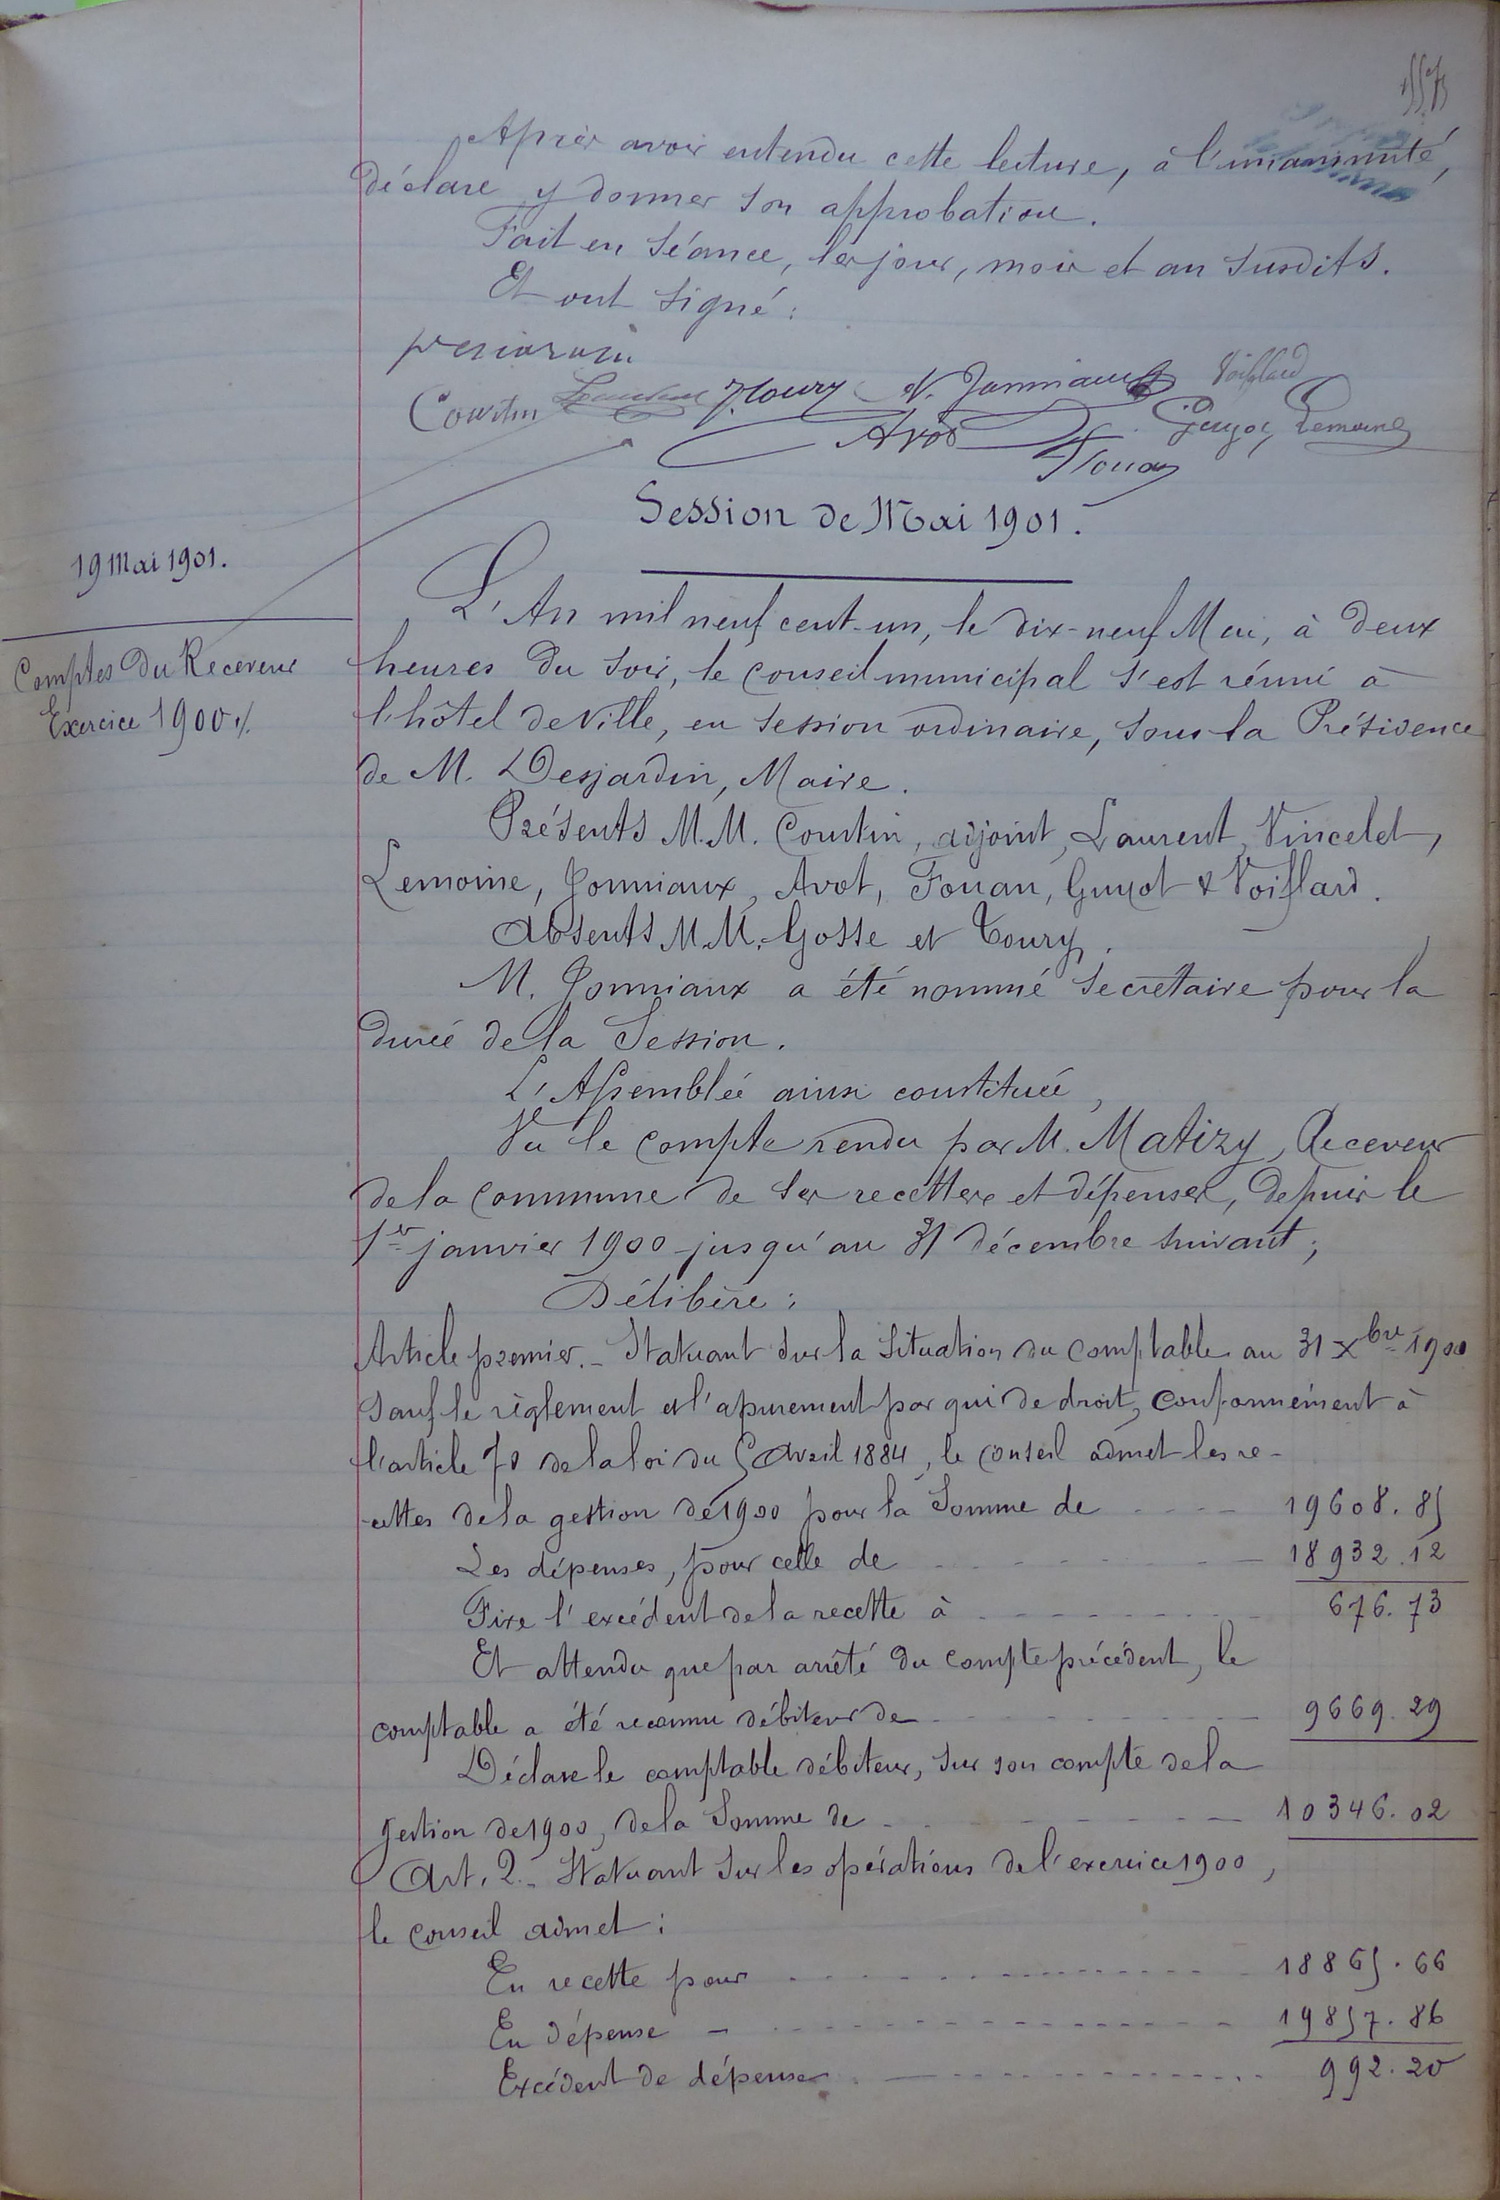 Après avoir entendu cette lecture, à l'unanimité,
déclare y donner son approbation.
Fait en Séance, les jour, mois et an susdits.
Et ont signé :
Courtin Laurent Toury N. Jonniaux Voiflard
Avot Guyot Lemoine
Fouan
Session de Mai 1901.
19 Mai 1901.
L'An mil neuf cent-un, le dix-neuf Mai, à deux
Comptes du Receveur
heures du soir, le conseil municipal s'est réuni à
Exercice 1900 ./.
l'hôtel de Ville, en session ordinaire, sous la Présidence
de M. Desjardin, Maire.
Présents M.M. Courtin, adjoint, Laurent, Vincelet,
Lemoine, Jonniaux, Avot, Fouan, Guyot & Voiflard.
Absents M.M. Gosse et Toury.
M. Jonniaux a été nommé Secrétaire pour la
durée de la Session.
L'Assemblée ainsi constituée,
Vu le compte rendu par M. Matizy, Receveur
de la commune de ses recettes et dépenses, depuis le
1er janvier 1900 jusqu'au 31 décembre suivant ;
Délibère :
Article premier. - Statuant sur la situation du comptable au 31 Xbre 1900
sauf le règlement et l'apurement par qui de droit, conformément à
l'article 70 de la loi du 5 Avril 1884, le conseil admet les re-
-cettes de la gestion de 1900 pour la Somme de 19608.85
Les dépenses, pour celle de 18932.12
Fixe l'excédent de la recette à 676.73
Et attendu que par arrêté du compte précédent, le
comptable a été reconnu débiteur de 9669.29
Déclare le comptable débiteur, sur son compte de la
gestion de 1900, de la Somme de 10346.02
Art. 2. - Statuant sur les opérations de l'exercice 1900,
le conseil admet :
En recette pour 18865.66
En dépense - 19857.86
Excédent de dépenses 992.20